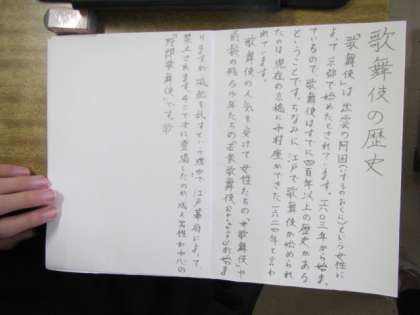 歌舞伎の歴史
「歌舞伎」は出雲の阿国(いずものおくに)という女性に
よって京都で始めたとされています。一六〇三年から始ま
っているので、歌舞伎はすでに四百年以上の歴史がある
ということです。ちなみに、江戸で歌舞伎が始められ
たのは現在の京橋に中村座ができた一六二四年と言わ
れています。
歌舞伎の人気を受けて女性たちの「女歌舞伎」や
前髪の残る少年たちの「若衆歌舞伎」
りますが、風紀を乱すという理由で江戸幕府によって
禁止されます。そこで次に登場したのが、成人男性が中心の
「野郎歌舞伎」です。